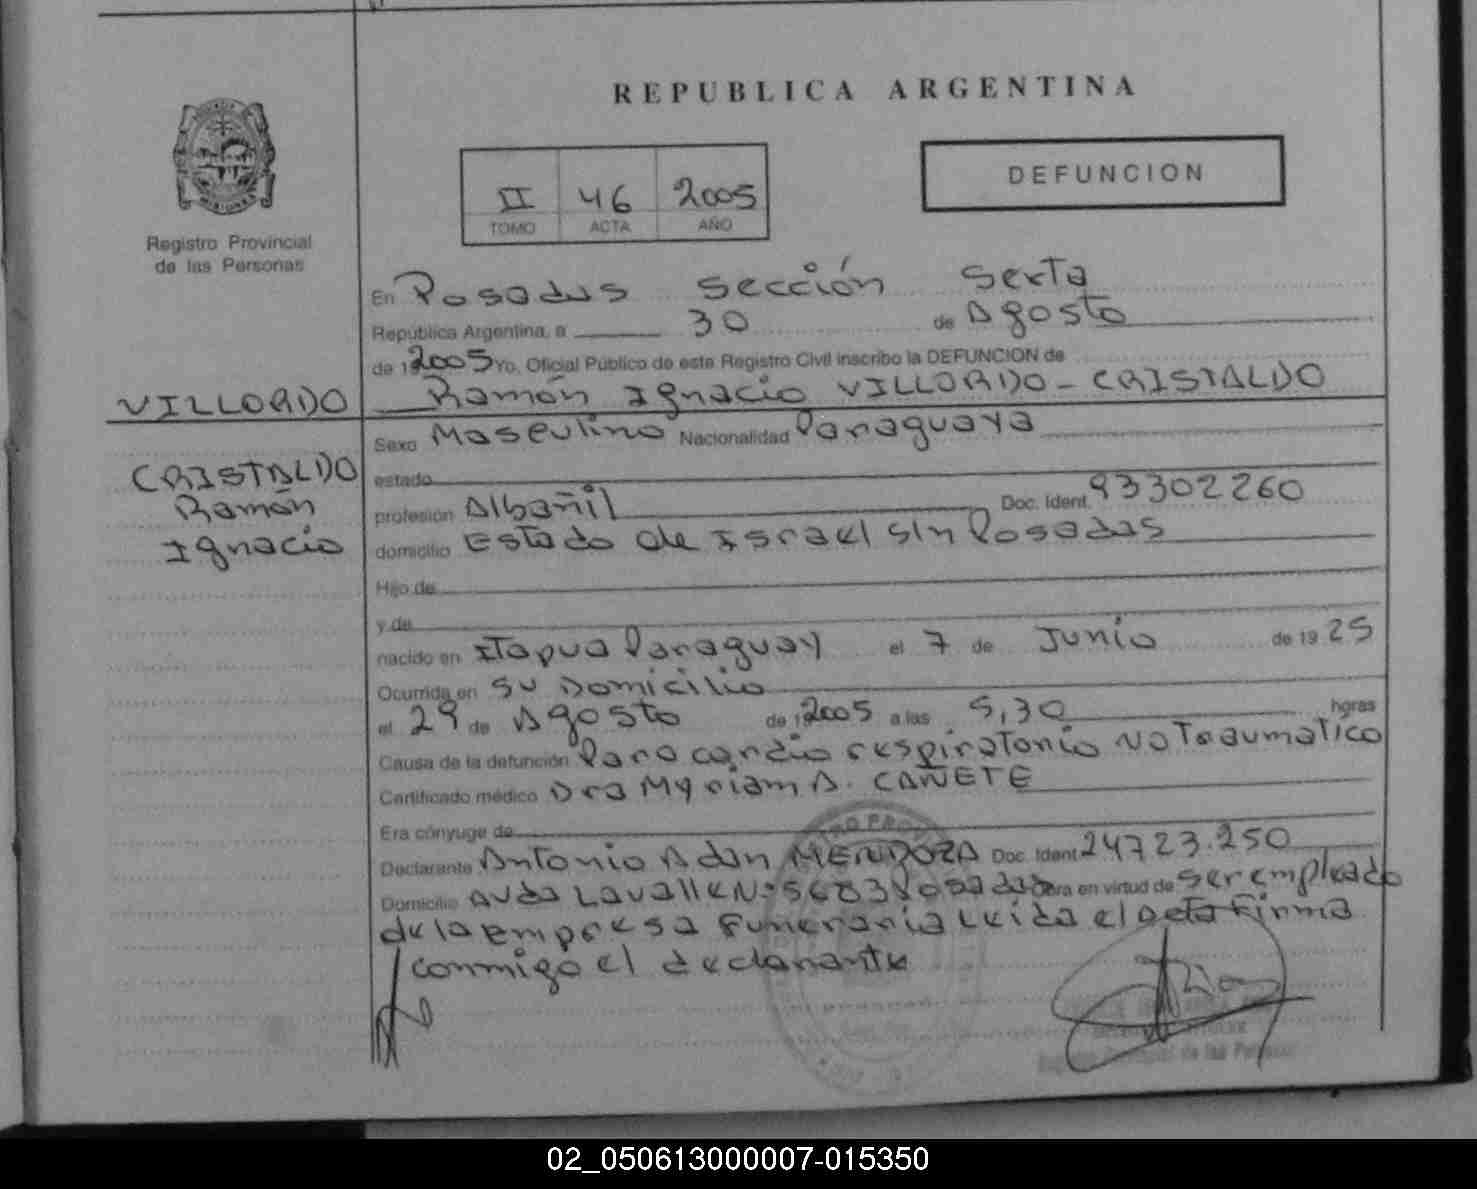 REPUBLICA ARGENTINA
II 46 2005
TOMO ACTA AÑO
DEFUNCION
MISIONES
Registro Provincial
de las Personas
En Posadas Sección Sexta
República Argentina, a 30 de Agosto
de 19 2005 Yo, Oficial Público de este Registro Civil inscribo la DEFUNCION de
Ramón Ignacio VILLORDO - CRISTALDO
VILLORDO
CRISTALDO
Ramón
Ignacio
Sexo Masculino Nacionalidad Paraguaya
estado
profesión Albañil Doc. Ident. 93302260
domicilio Estado de Israel s/n Posadas
Hijo de
y de
nacido en Itapua Paraguay el 7 de Junio de 19 25
Ocurrida en su Domicilio
el 29 de Agosto de 19 2005 a las 5,30 horas
Causa de la defunción Paro cardio respiratorio No Traumatico
Certificado médico Dra Myriam A. CAÑETE
Era cónyuge de
Declarante Antonio Adan MENDOZA Doc. Ident 24723.250
Domicilio Avda Lavalle Nº 5683 Posadas Obra en virtud de ser empleado
de la empresa Funeraria Leida el Acta Firma
conmigo el declarante
de las Personas
02_050613000007-015350